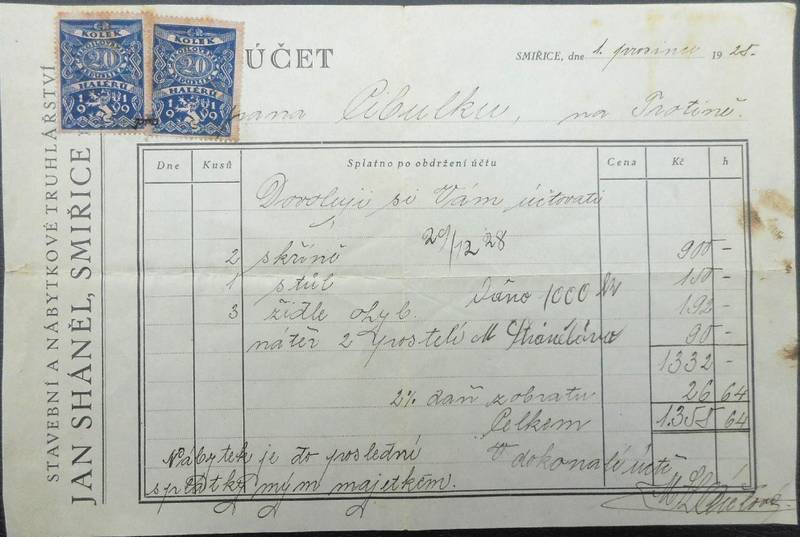 KOLEK
20
HALÉŘŮ
1919
KOLEK
20
HALÉŘŮ
1919
ÚČET
SMIŘICE, dne 1. prosince 1928.
STAVEBNÍ A NÁBYTKOVÉ TRUHLÁŘSTVÍ
JAN SHÁNĚL, SMIŘICE
pana Cibulku, na Trotině.
Dne Kusů Splatno po obdržení účtu Cena Kč h
Dovoluji si Vám účtovati
29/12 28
2 skříně 900 –
1 stůl 150 –
3 židle ohyb. 192 –
Dáno 1000 Kč
nátěr 2 postelí 90 –
M
1332 –
2% daň z obratu 26 64
Celkem 1.358 64
Nábytek je do poslední
splátky mým majetkem.
V dokonalé úctě